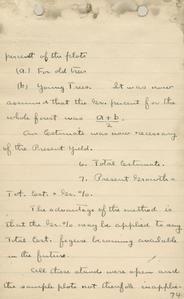 percent of the plots
(a.) For old trees
(b) Young Trees. It was now
assumed that the Gr. percent for the
whole forest was a+b
2
An Estimate was now necessary
of the Present Yield.
6. Total Estimate.
7. Present Growth =
Tot. Est. x Gr. %.
The advantage of the method is
that the Gr. % may be applied to any
Total Est. figures becoming available
in the future.
All these stands were open and
the sample plots therefore inapplic-
74